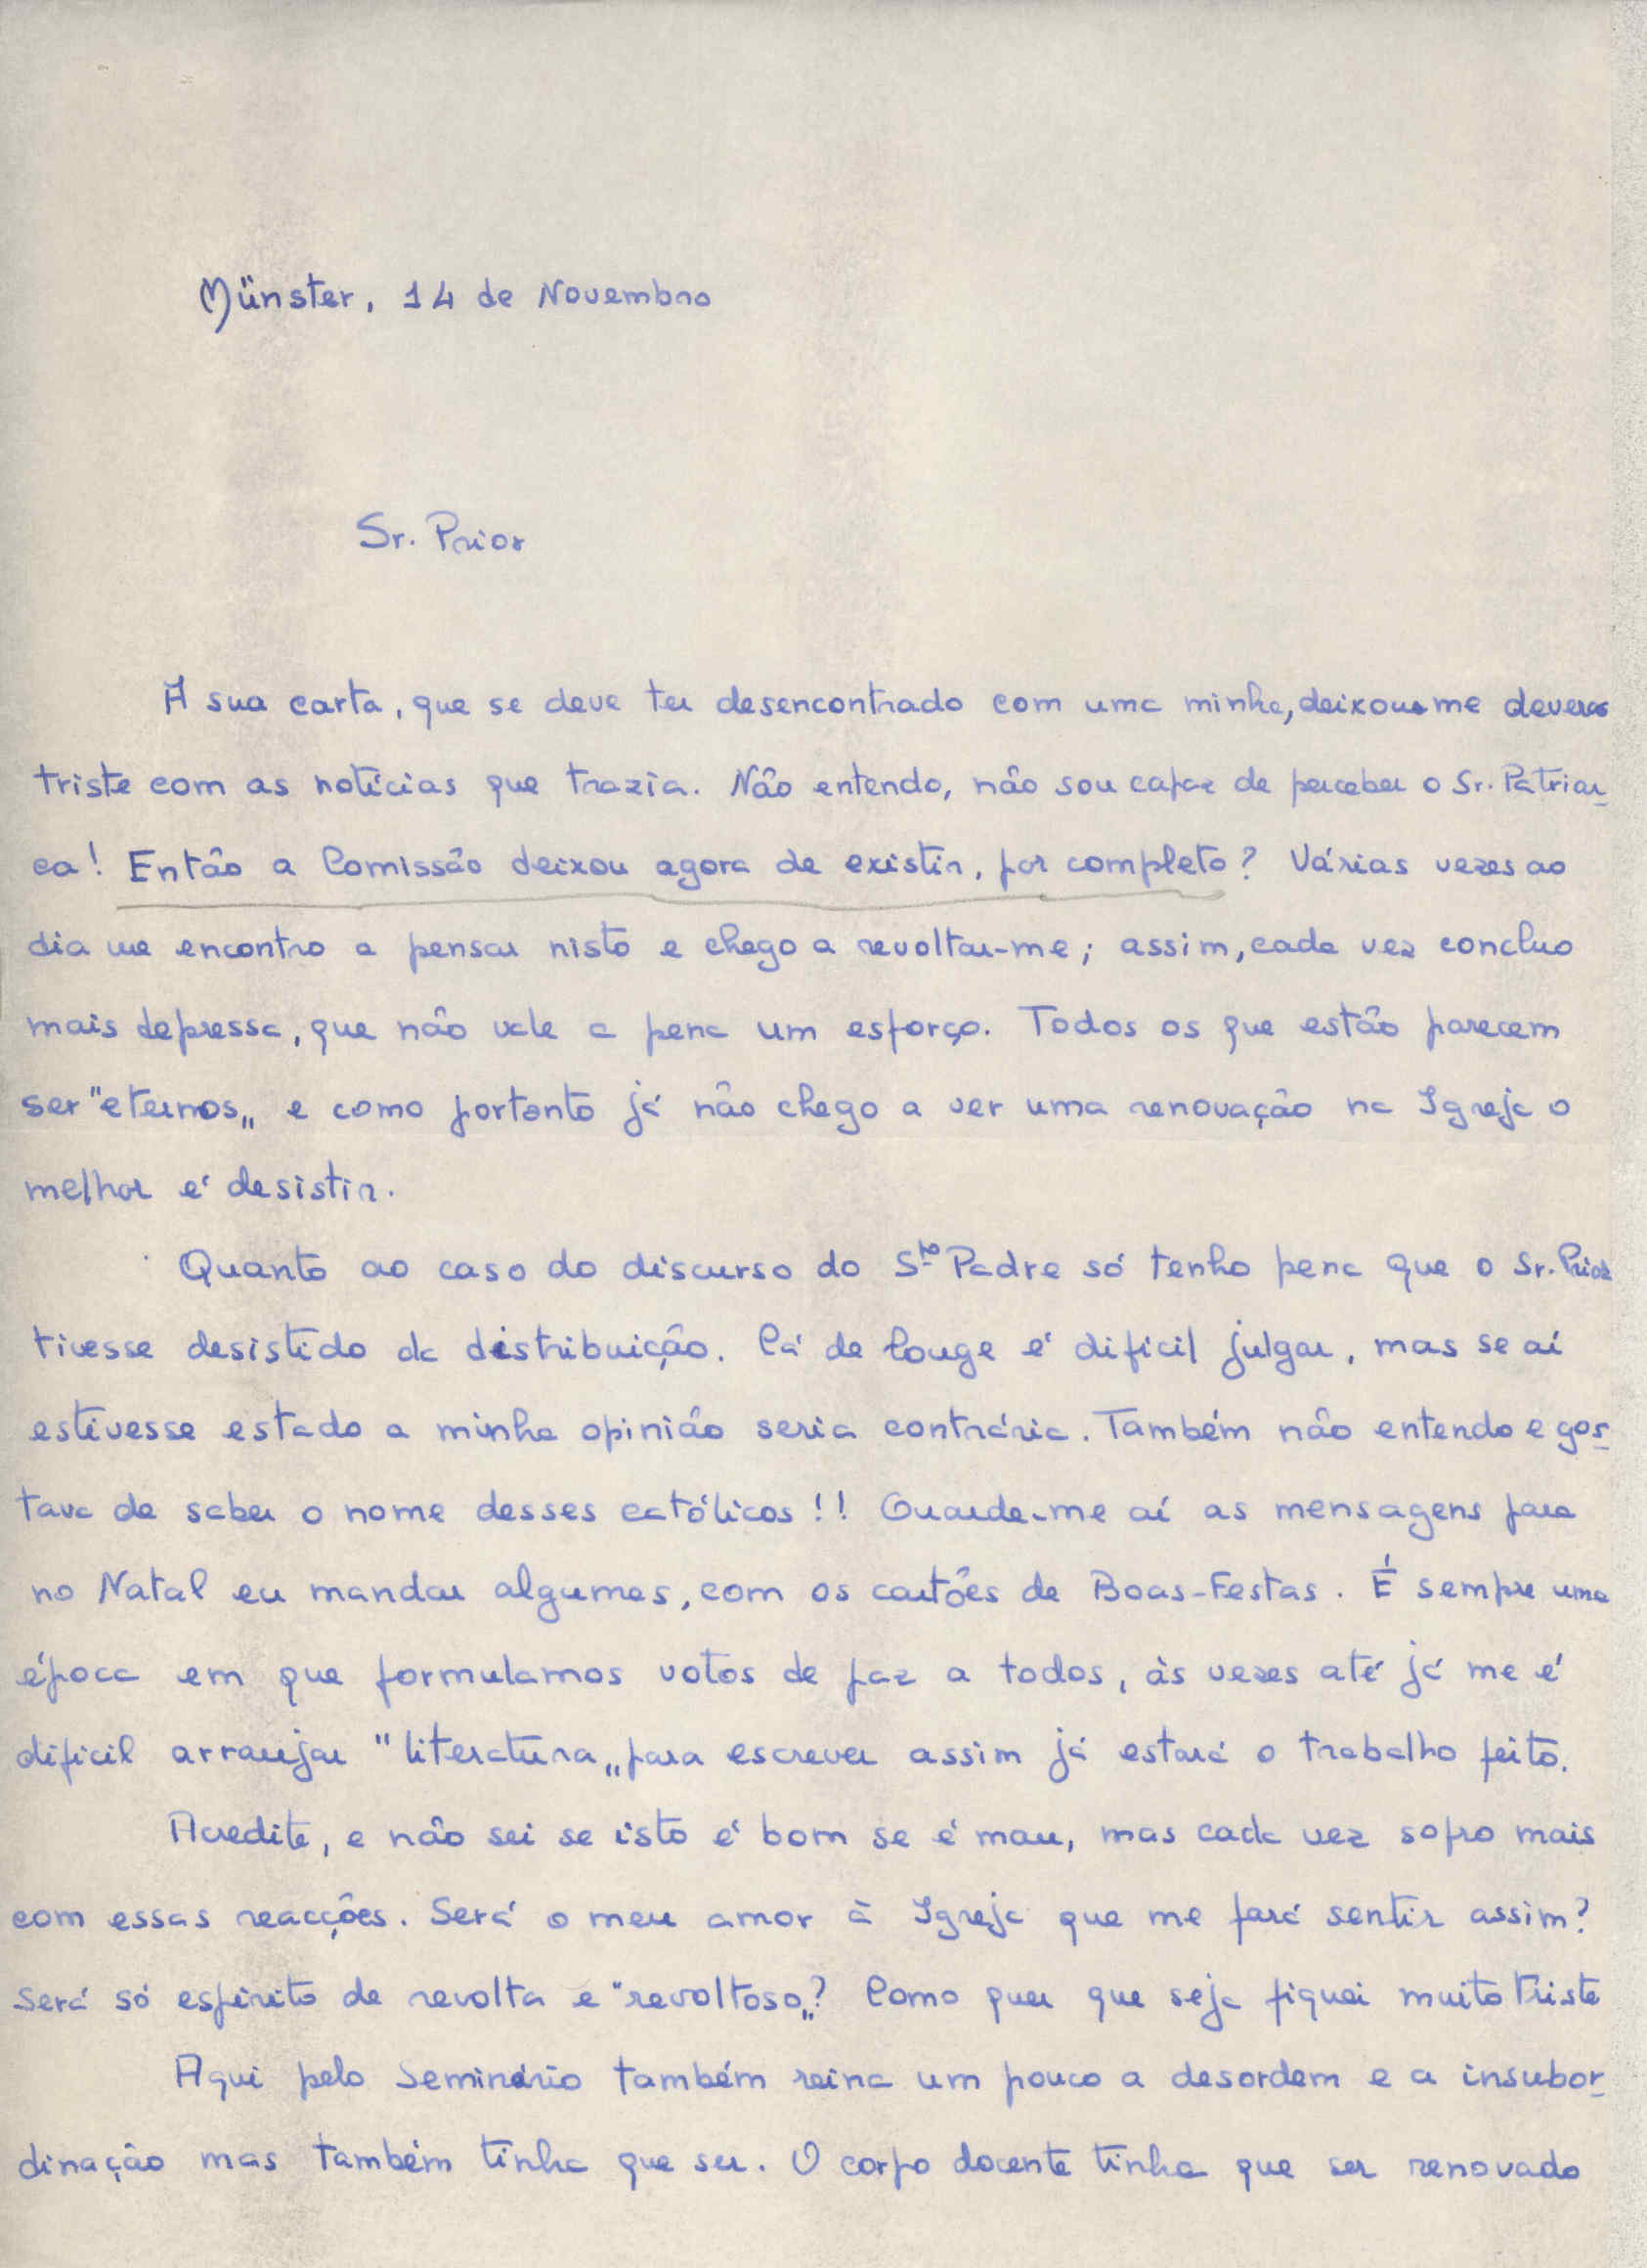 Münster, 14 de Novembro
Sr. Prior
A sua carta, que se deve ter desencontrado com uma minha, deixou-me deveras
triste com as notícias que trazia. Não entendo, não sou capaz de perceber o Sr. Patriar-
ca! Então a Comissão deixou agora de existir, por completo? Várias vezes ao
dia me encontro a pensar nisto e chego a revoltar-me; assim, cada vez concluo
mais depressa, que não vale a pena um esforço. Todos os que estão parecem
ser "eternos„ e como portanto já não chego a ver uma renovação na Igreja o
melhor é desistir.
Quanto ao caso do discurso do Sto Padre só tenho pena que o Sr. Prior
tivesse desistido da distribuição. Cá de longe é difícil julgar, mas se aí
estivesse estado a minha opinião seria contrária. Também não entendo e gos-
tava de saber o nome desses católicos!! Guarde-me aí as mensagens para
no Natal eu mandar algumas, com os cartões de Boas-Festas. É sempre uma
época em que formulamos votos de paz a todos, às vezes até já me é
difícil arranjar "literatura„ para escrever assim já estará o trabalho feito.
Acredite, e não sei se isto é bom se é mau, mas cada vez sofro mais
com essas reacções. Será o meu amor à Igreja que me fará sentir assim?
Será só espírito de revolta e "revoltoso„? Como quer que seja fiquei muito triste
Aqui pelo Seminário também reina um pouco a desordem e a insubor-
dinação mas também tinha que ser. O corpo docente tinha que ser renovado